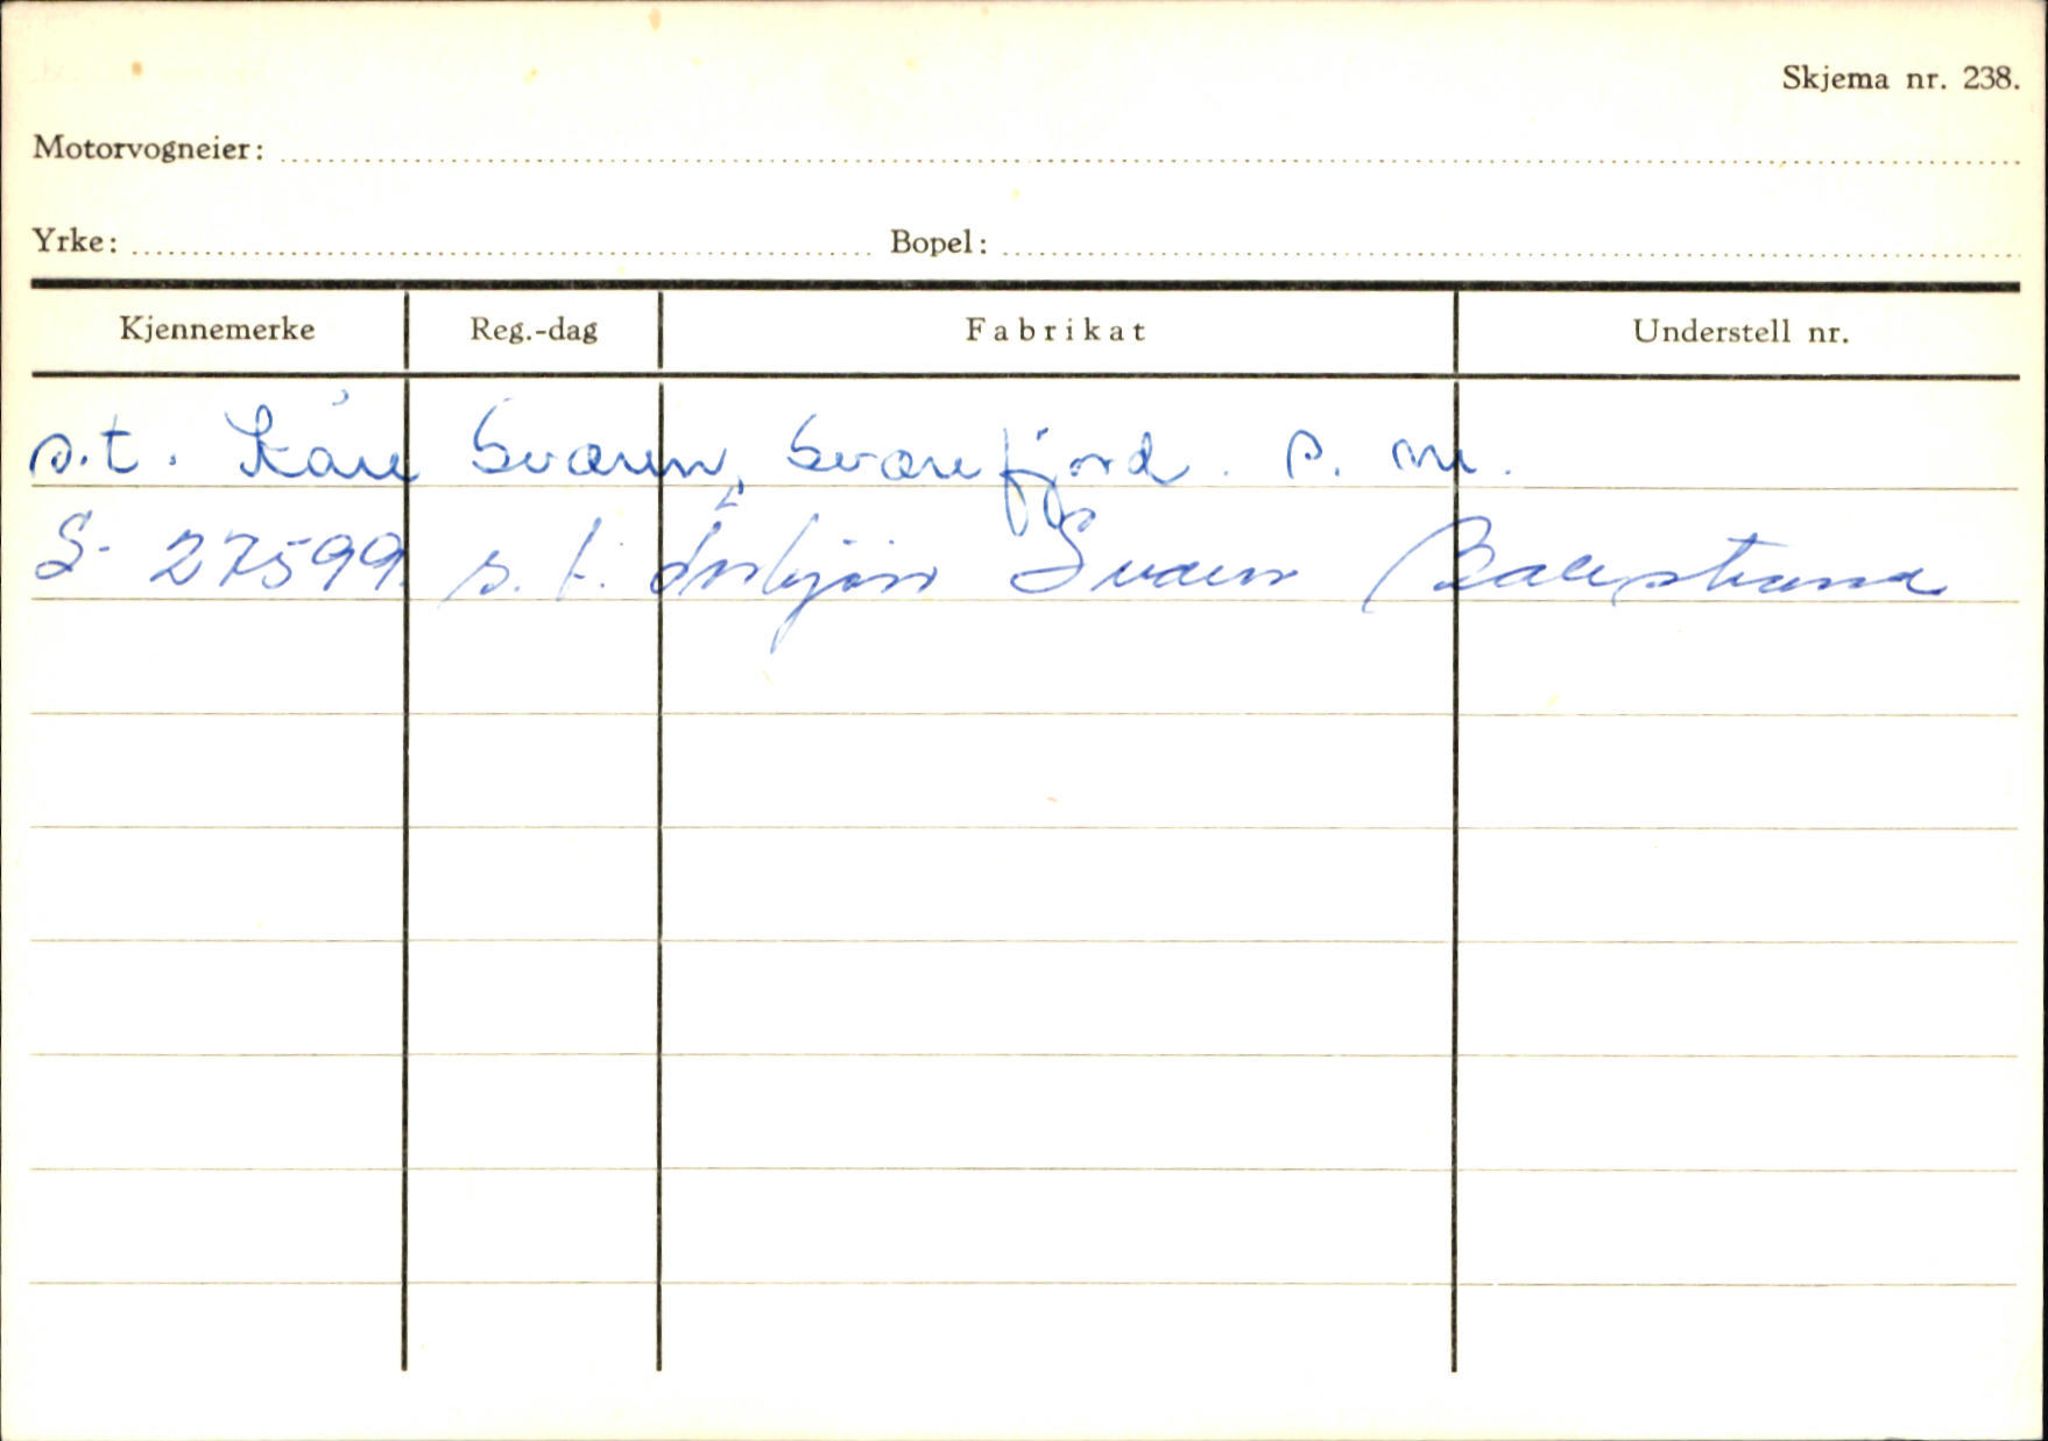 Skjema nr. 238.
Motorvogneier:
Yrke: Bopel:
Kjennemerke Reg.-dag Fabrikat Understell nr.
s.t. Kåre Sværen, Sværefjord. s. nr.
S- 27599. s.t. Asbjørn Sværen Balestrand